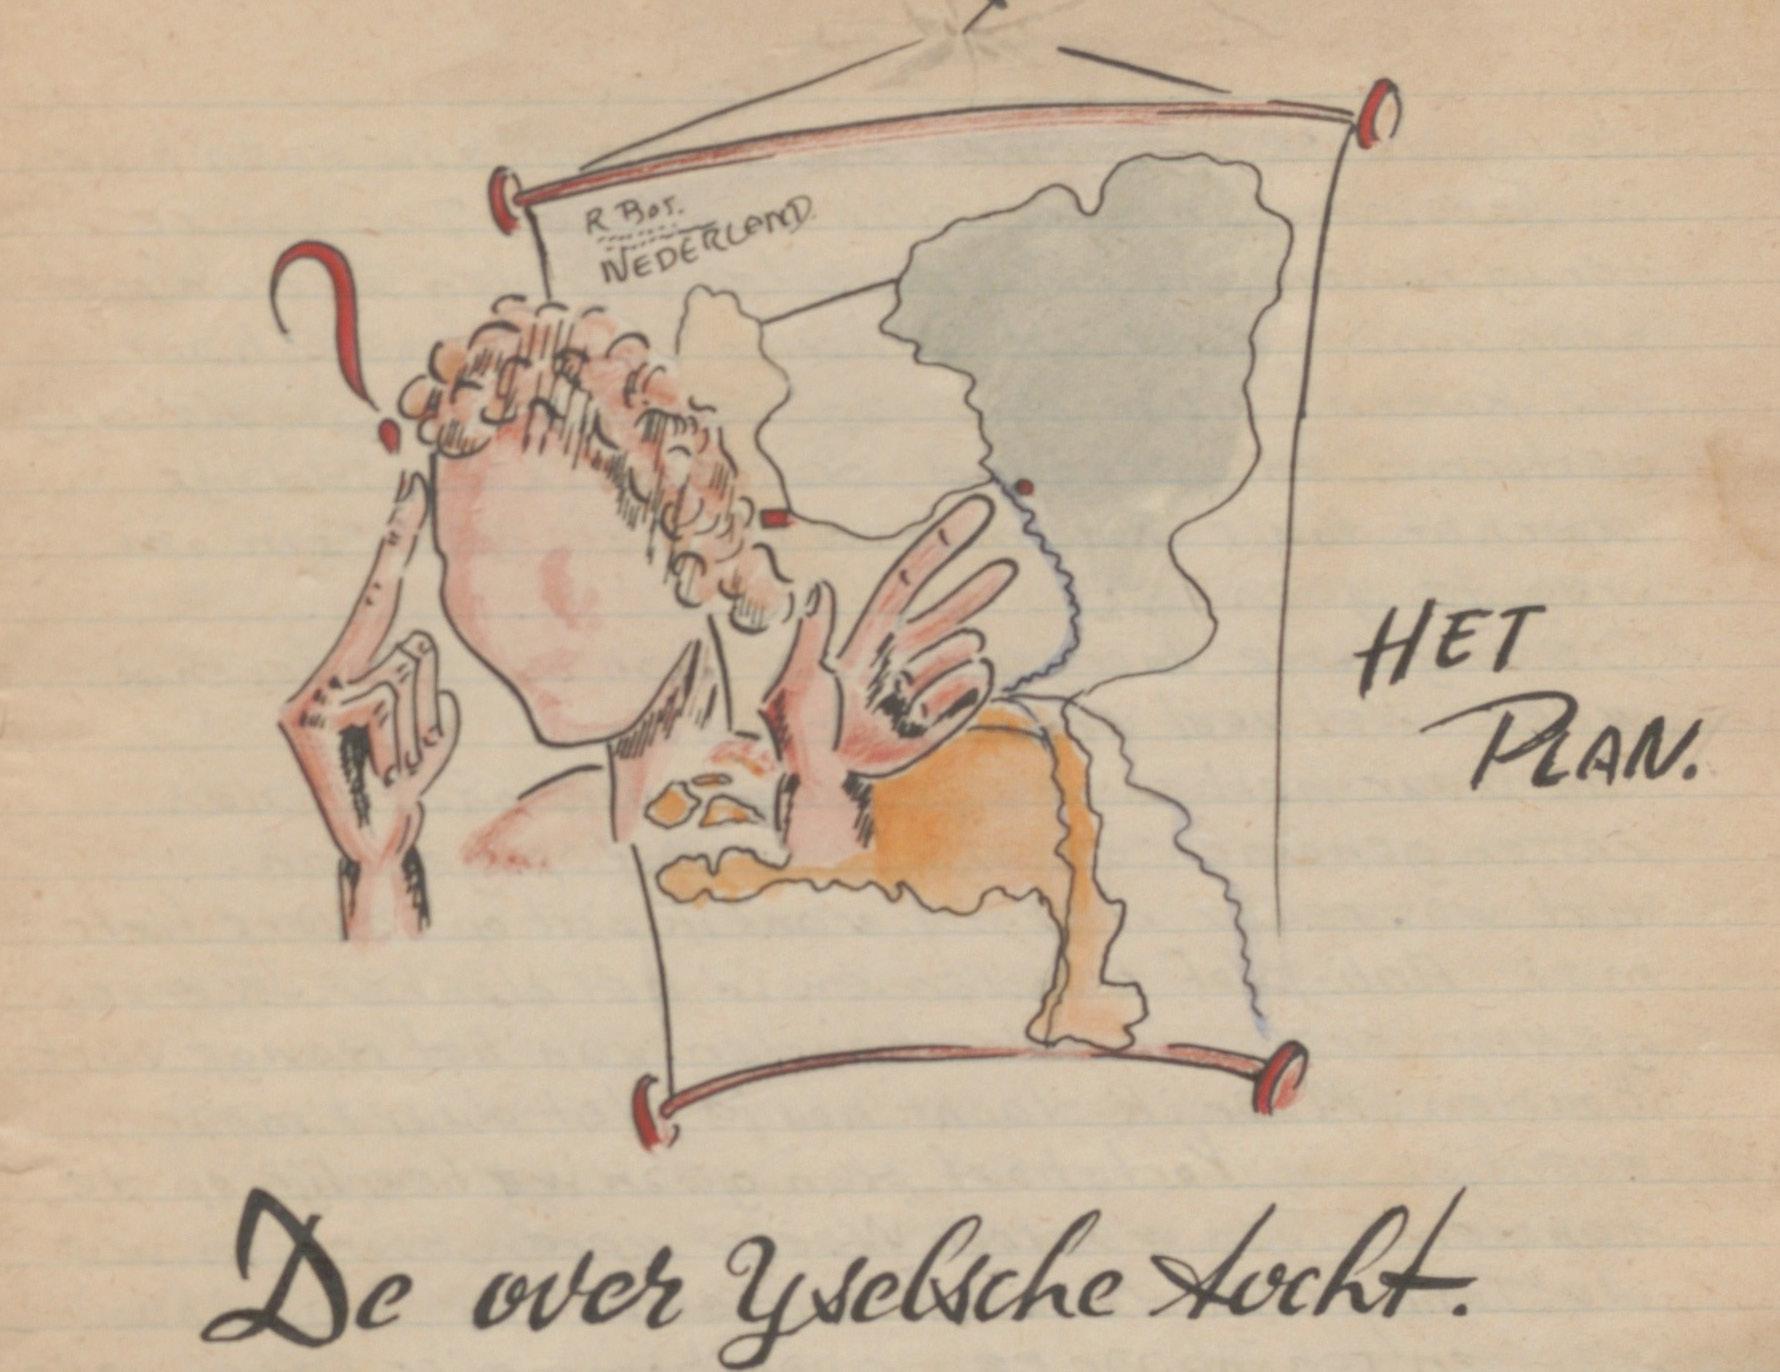 R Bos.
NEDERLAND.
?
HET
PLAN.
De over Yselsche tocht.